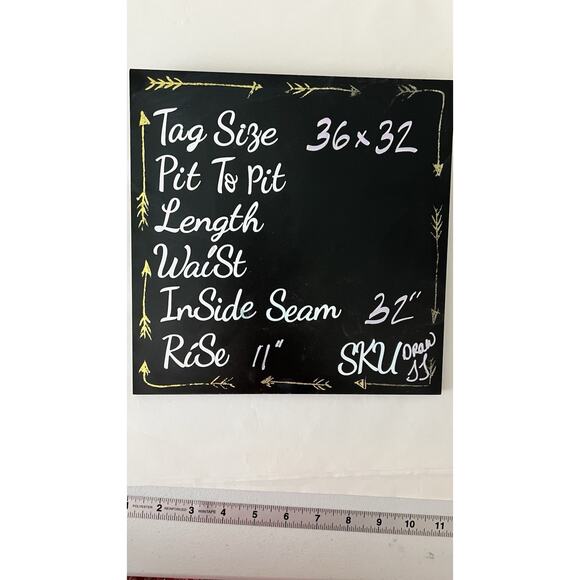 Tag Size 36 x 32
Pit To Pit
Length
Waist
InSide Seam 32"
RiSe 11" SKU
1 POLYESTER 2 REINFORCED 3 4 5 6 7 8 9 10 11